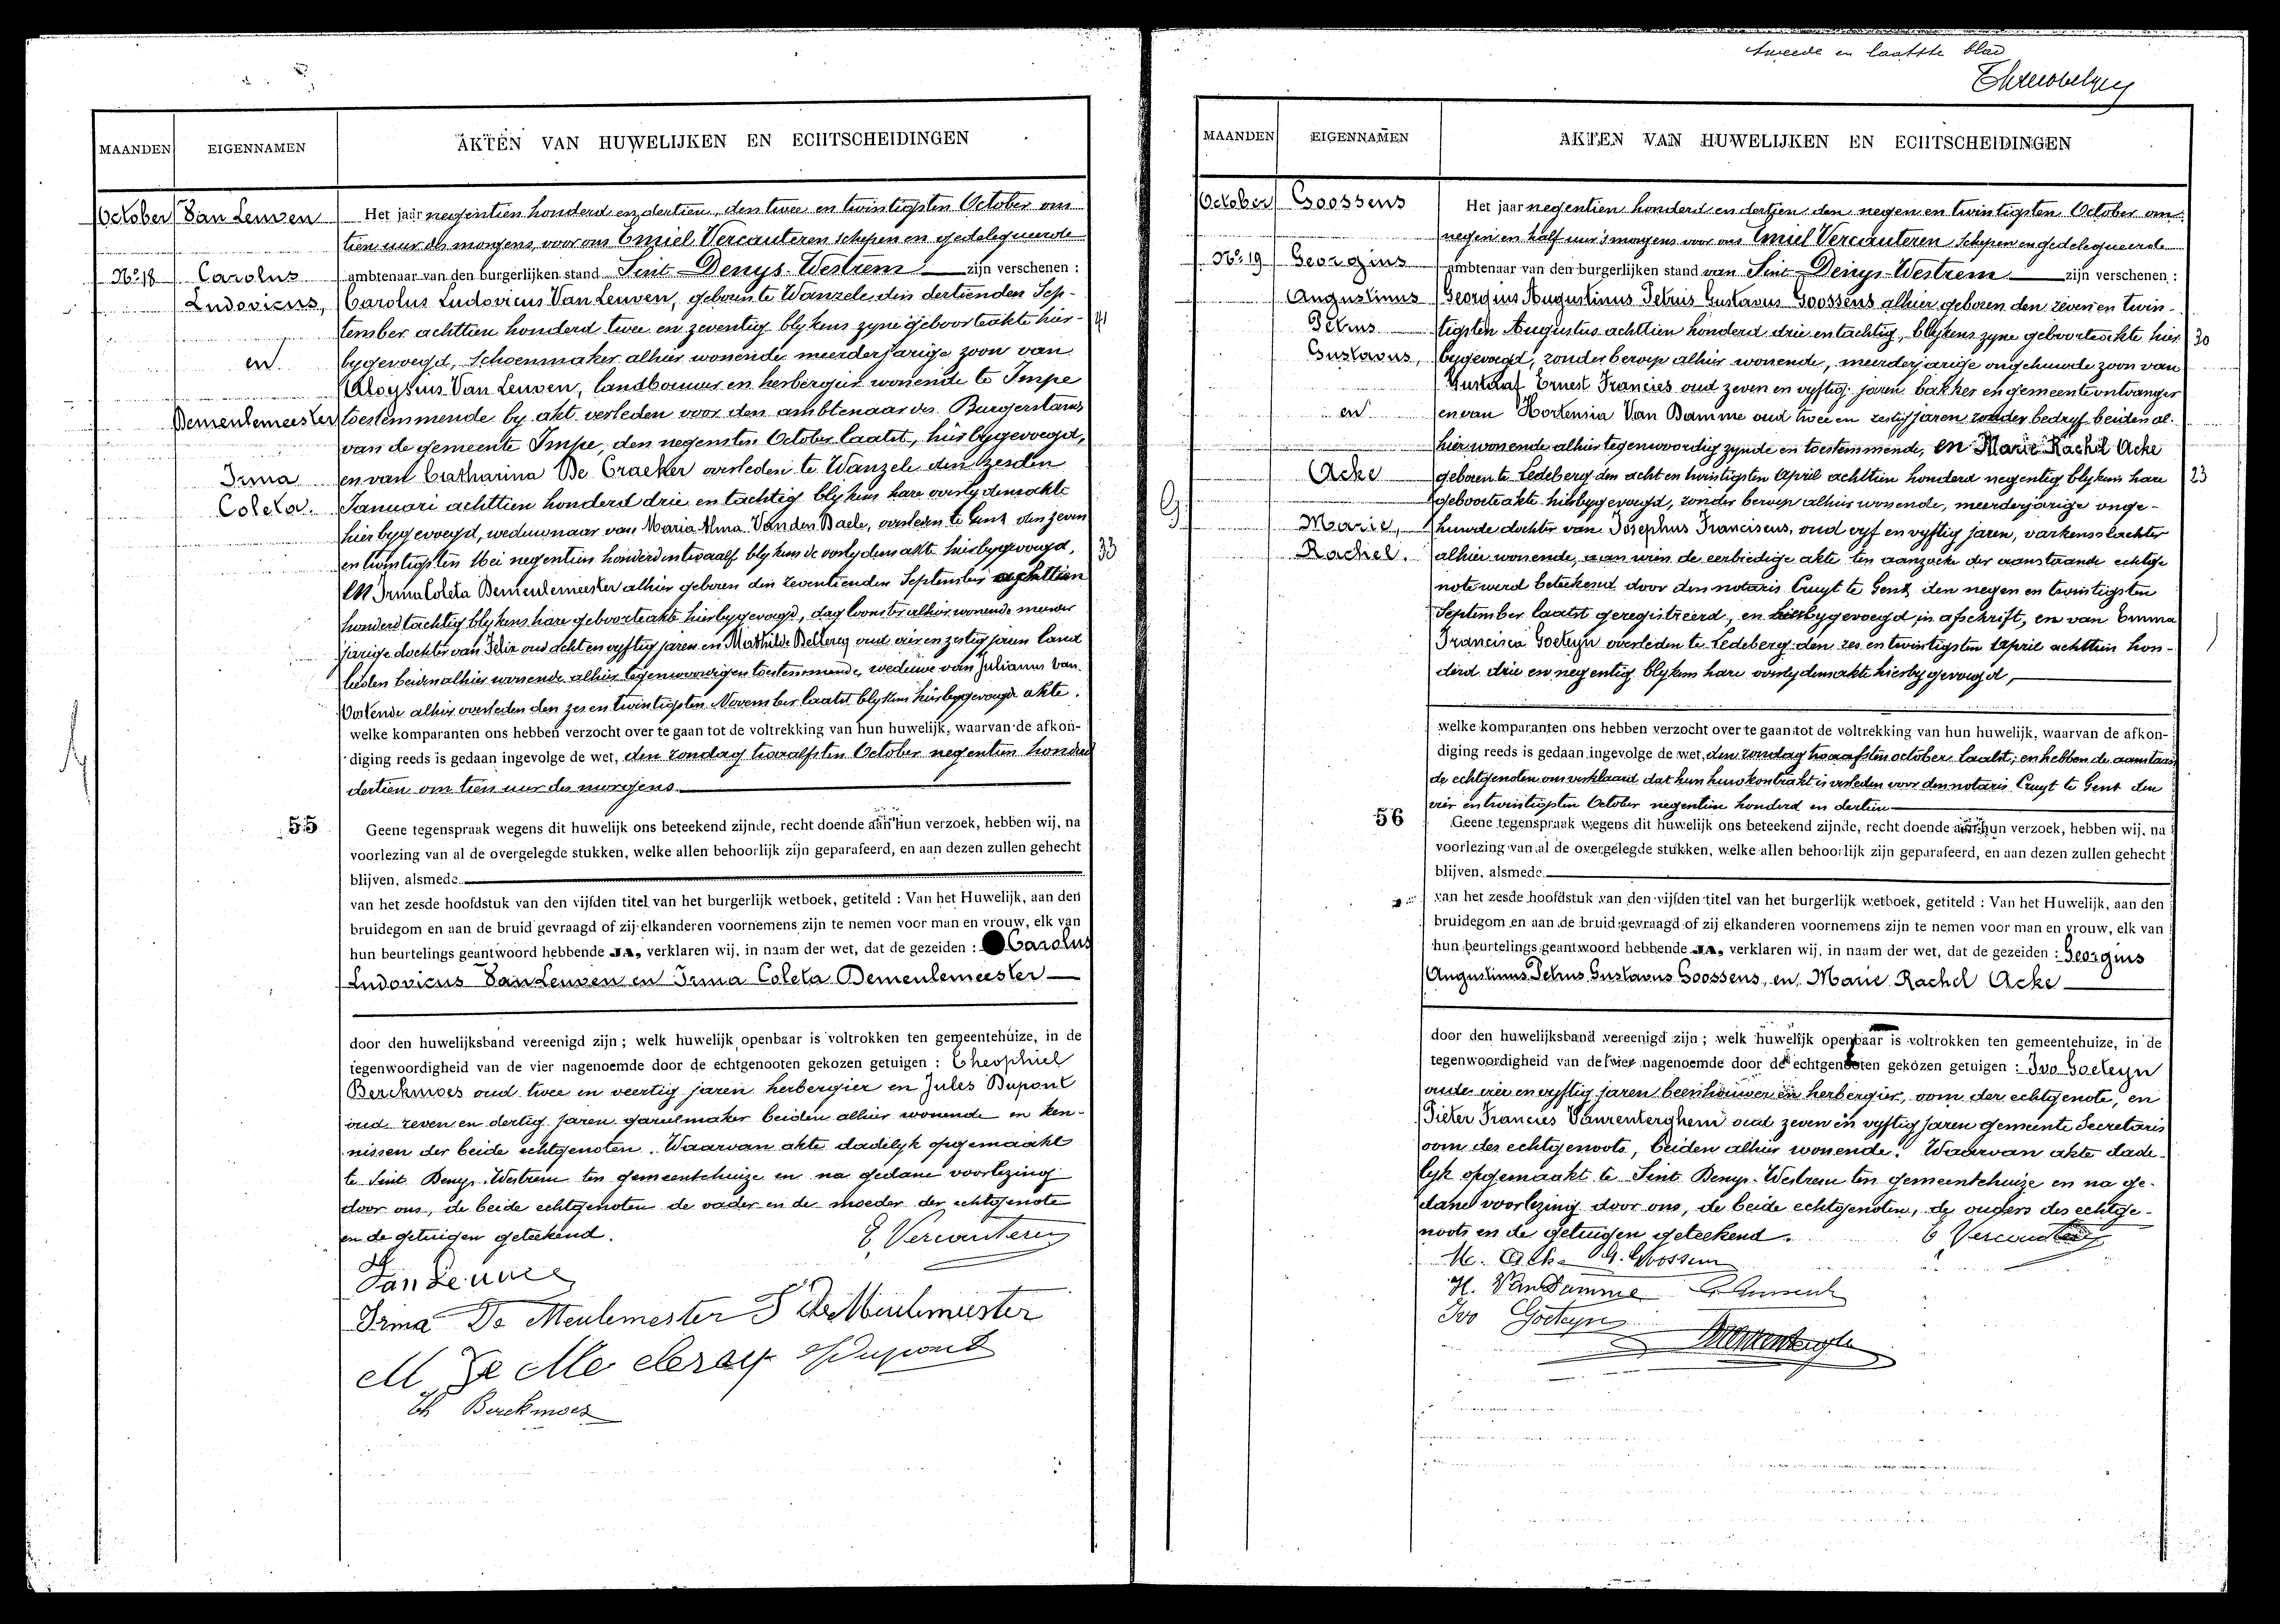 tweede en laatste blad
MAANDEN
EIGENNAMEN
AKTEN VAN HUWELIJKEN EN ECHTSCHEIDINGEN
October
Van Leuven
Nº 18
Carolus
Ludovicus,
en
Demeulemeester
Irma
Coleta.
Het jaar negentien honderd en dertien, den twee en twintigsten October om
tien uur des morgens, voor ons Emiel Vercauteren schepen en gedelegueerde
ambtenaar van den burgerlijken stand Sint Denys-Westrem zijn verschenen :
Carolus Ludovicus Van Leuven, geboren te Wanzele den dertienden Sep-
tember achttien honderd twee en zeventig blykens zyne geboorteakte hier- 41
bygevoegd, Schoenmaker alhier wonende meerderjarige zoon van
Aloysius Van Leuven, landbouwer en herbergier wonende te Impe
toestemmende by akt verleden voor den ambtenaar des Burgerstands
van de gemeente Impe, den negensten October laatst, hierbygevoegd,
en van Catharina De Craeker overleden te Wanzele den zesden
Januari achttien honderd drie en tachtig blykens hare overlydensakte
hierbygevoegd, weduwnaar van Maria Alma Van den Baele, overleden te Gent den zeven
en twintigsten Mei negentien honderd en twaalf blykens de overlydens akte hierbygevoegd, 33
en Irma Coleta Demeulemeester alhier geboren den zeventienden September achttien
honderd tachtig blykens hare geboorteakte hierbygevoegd, dagloonster alhier wonende meerder
jarige dochter van Felix oud acht en vyftig jaren en Mathilde Demeerleer oud vier en zestig jaren land
lieden beiden alhier wonende alhier tegenwoordig en toestemmende, weduwe van Julianus Van
Oostende alhier overleden den zes en twintigsten November laatst blykens hierbygevoegde akte.
welke komparanten ons hebben verzocht over te gaan tot de voltrekking van hun huwelijk, waarvan de afkon-
diging reeds is gedaan ingevolge de wet, den zondag twaalfsten October negentien honderd
dertien om tien uur des morgens.
55
Geene tegenspraak wegens dit huwelijk ons beteekend zijnde, recht doende aan hun verzoek, hebben wij, na
voorlezing van al de overgelegde stukken, welke allen behoorlijk zijn geparafeerd, en aan dezen zullen gehecht
blijven, alsmede
van het zesde hoofdstuk van den vijfden titel van het burgerlijk wetboek, getiteld : Van het Huwelijk, aan den
bruidegom en aan de bruid gevraagd of zij elkanderen voornemens zijn te nemen voor man en vrouw, elk van
hun beurtelings geantwoord hebbende JA, verklaren wij, in naam der wet, dat de gezeiden : Carolus
Ludovicus Van Leuven en Irma Coleta Demeulemeester
door den huwelijksband vereenigd zijn ; welk huwelijk openbaar is voltrokken ten gemeentehuize, in de
tegenwoordigheid van de vier nagenoemde door de echtgenooten gekozen getuigen : Theophiel
Berckmoes oud twee en veertig jaren herbergier en Jules Dupont
oud zeven en dertig jaren gareelmaker beiden alhier wonende en ken-
nissen der beide echtgenoten. Waarvan akte dadelyk opgemaakt
te Sint Denys-Westrem ten gemeentehuize en na gedane voorlezing
door ons, de beide echtgenoten de vader en de moeder der echtgenote
en de getuigen geteekend.
E. Vercauteren
Van Leuven
Irma De Meulemester F De Meulemeester
Th Berckmoes
MAANDEN
EIGENNAMEN
AKTEN VAN HUWELIJKEN EN ECHTSCHEIDINGEN
October
Goossens
Nº 19
Georgius
Augustinus
Petrus
Gustavus,
en
Acke
Marie,
Rachel.
Het jaar negentien honderd en dertien den negen en twintigsten October om
negen en half uur 's morgens voor ons Emiel Vercauteren Schepen en gedelegueerde
ambtenaar van den burgerlijken stand van Sint-Denys-Westrem zijn verschenen :
Georgius Augustinus Petrus Gustavus Goossens alhier geboren den zeven en twin-
tigsten Augustus achttien honderd drie en tachtig, blykens zyne geboorteakte hier 30
bygevoegd, zonder beroep alhier wonende, meerderjarige ongehuwde zoon van
Gustaaf Ernest Francies oud zeven en vyftig jaren bakker en gemeenteontvanger
en van Hortensia Van Damme oud twee en zestig jaren zonder bedryf beiden al-
hier wonende alhier tegenwoordig zynde en toestemmende, en Marie Rachel Acke
geboren te Ledeberg den acht en twintigsten April achttien honderd negentig blykens hare 23
geboorteakte hierbygevoegd, zonder beroep alhier wonende, meerderjarige onge-
huwde dochter van Josephus Franciscus, oud vyf en vyftig jaren, varkensslachter
alhier wonende, aan wien de eerbiedige akte ten aanzoeke der aanstaande echtge
note werd beteekend door den notaris Cruyt te Gent den negen en twintigsten
September laatst geregistreerd, en hierbygevoegd in afschrift, en van Emma
Francisca Goeteyn overleden te Ledeberg den zes en twintigsten April achttien hon-
derd drie en negentig blykens hare overlydensakte hierbygevoegd,
welke komparanten ons hebben verzocht over te gaan tot de voltrekking van hun huwelijk, waarvan de afkon-
diging reeds is gedaan ingevolge de wet, den zondag twaalfsten october laatst; en hebben de aanstaan
de echtgenoten ons verklaard dat hun huwkontrakt is verleden voor den notaris Cruyt te Gent den
vier en twintigsten October negentien honderd en dertien
56
Geene tegenspraak wegens dit huwelijk ons beteekend zijnde, recht doende aan hun verzoek, hebben wij, na
voorlezing van al de overgelegde stukken, welke allen behoorlijk zijn geparafeerd, en aan dezen zullen gehecht
blijven, alsmede
van het zesde hoofdstuk van den vijfden titel van het burgerlijk wetboek, getiteld : Van het Huwelijk, aan den
bruidegom en aan de bruid gevraagd of zij elkanderen voornemens zijn te nemen voor man en vrouw, elk van
hun beurtelings geantwoord hebbende JA, verklaren wij, in naam der wet, dat de gezeiden : Georgius
Augustinus Petrus Gustavus Goossens, en Marie Rachel Acke
door den huwelijksband vereenigd zijn ; welk huwelijk openbaar is voltrokken ten gemeentehuize, in de
tegenwoordigheid van de vier nagenoemde door de echtgenooten gekozen getuigen : Ivo Goeteyn
oud vier en vyftig jaren beenhouwer en herbergier, oom der echtgenote, en
Pieter Francies Vanrenterghem oud zeven en vyftig jaren gemeente Secretaris
oom des echtgenoots, beiden alhier wonende. Waarvan akte dade-
lyk opgemaakt te Sint Denys-Westrem ten gemeentehuize en na ge-
dane voorlezing door ons, de beide echtgenoten, de ouders des echtge-
noots en de getuigen geteekend.
E Vercauteren
M. Acke G. Goossens
H. Van Damme
Ivo Goeteyn